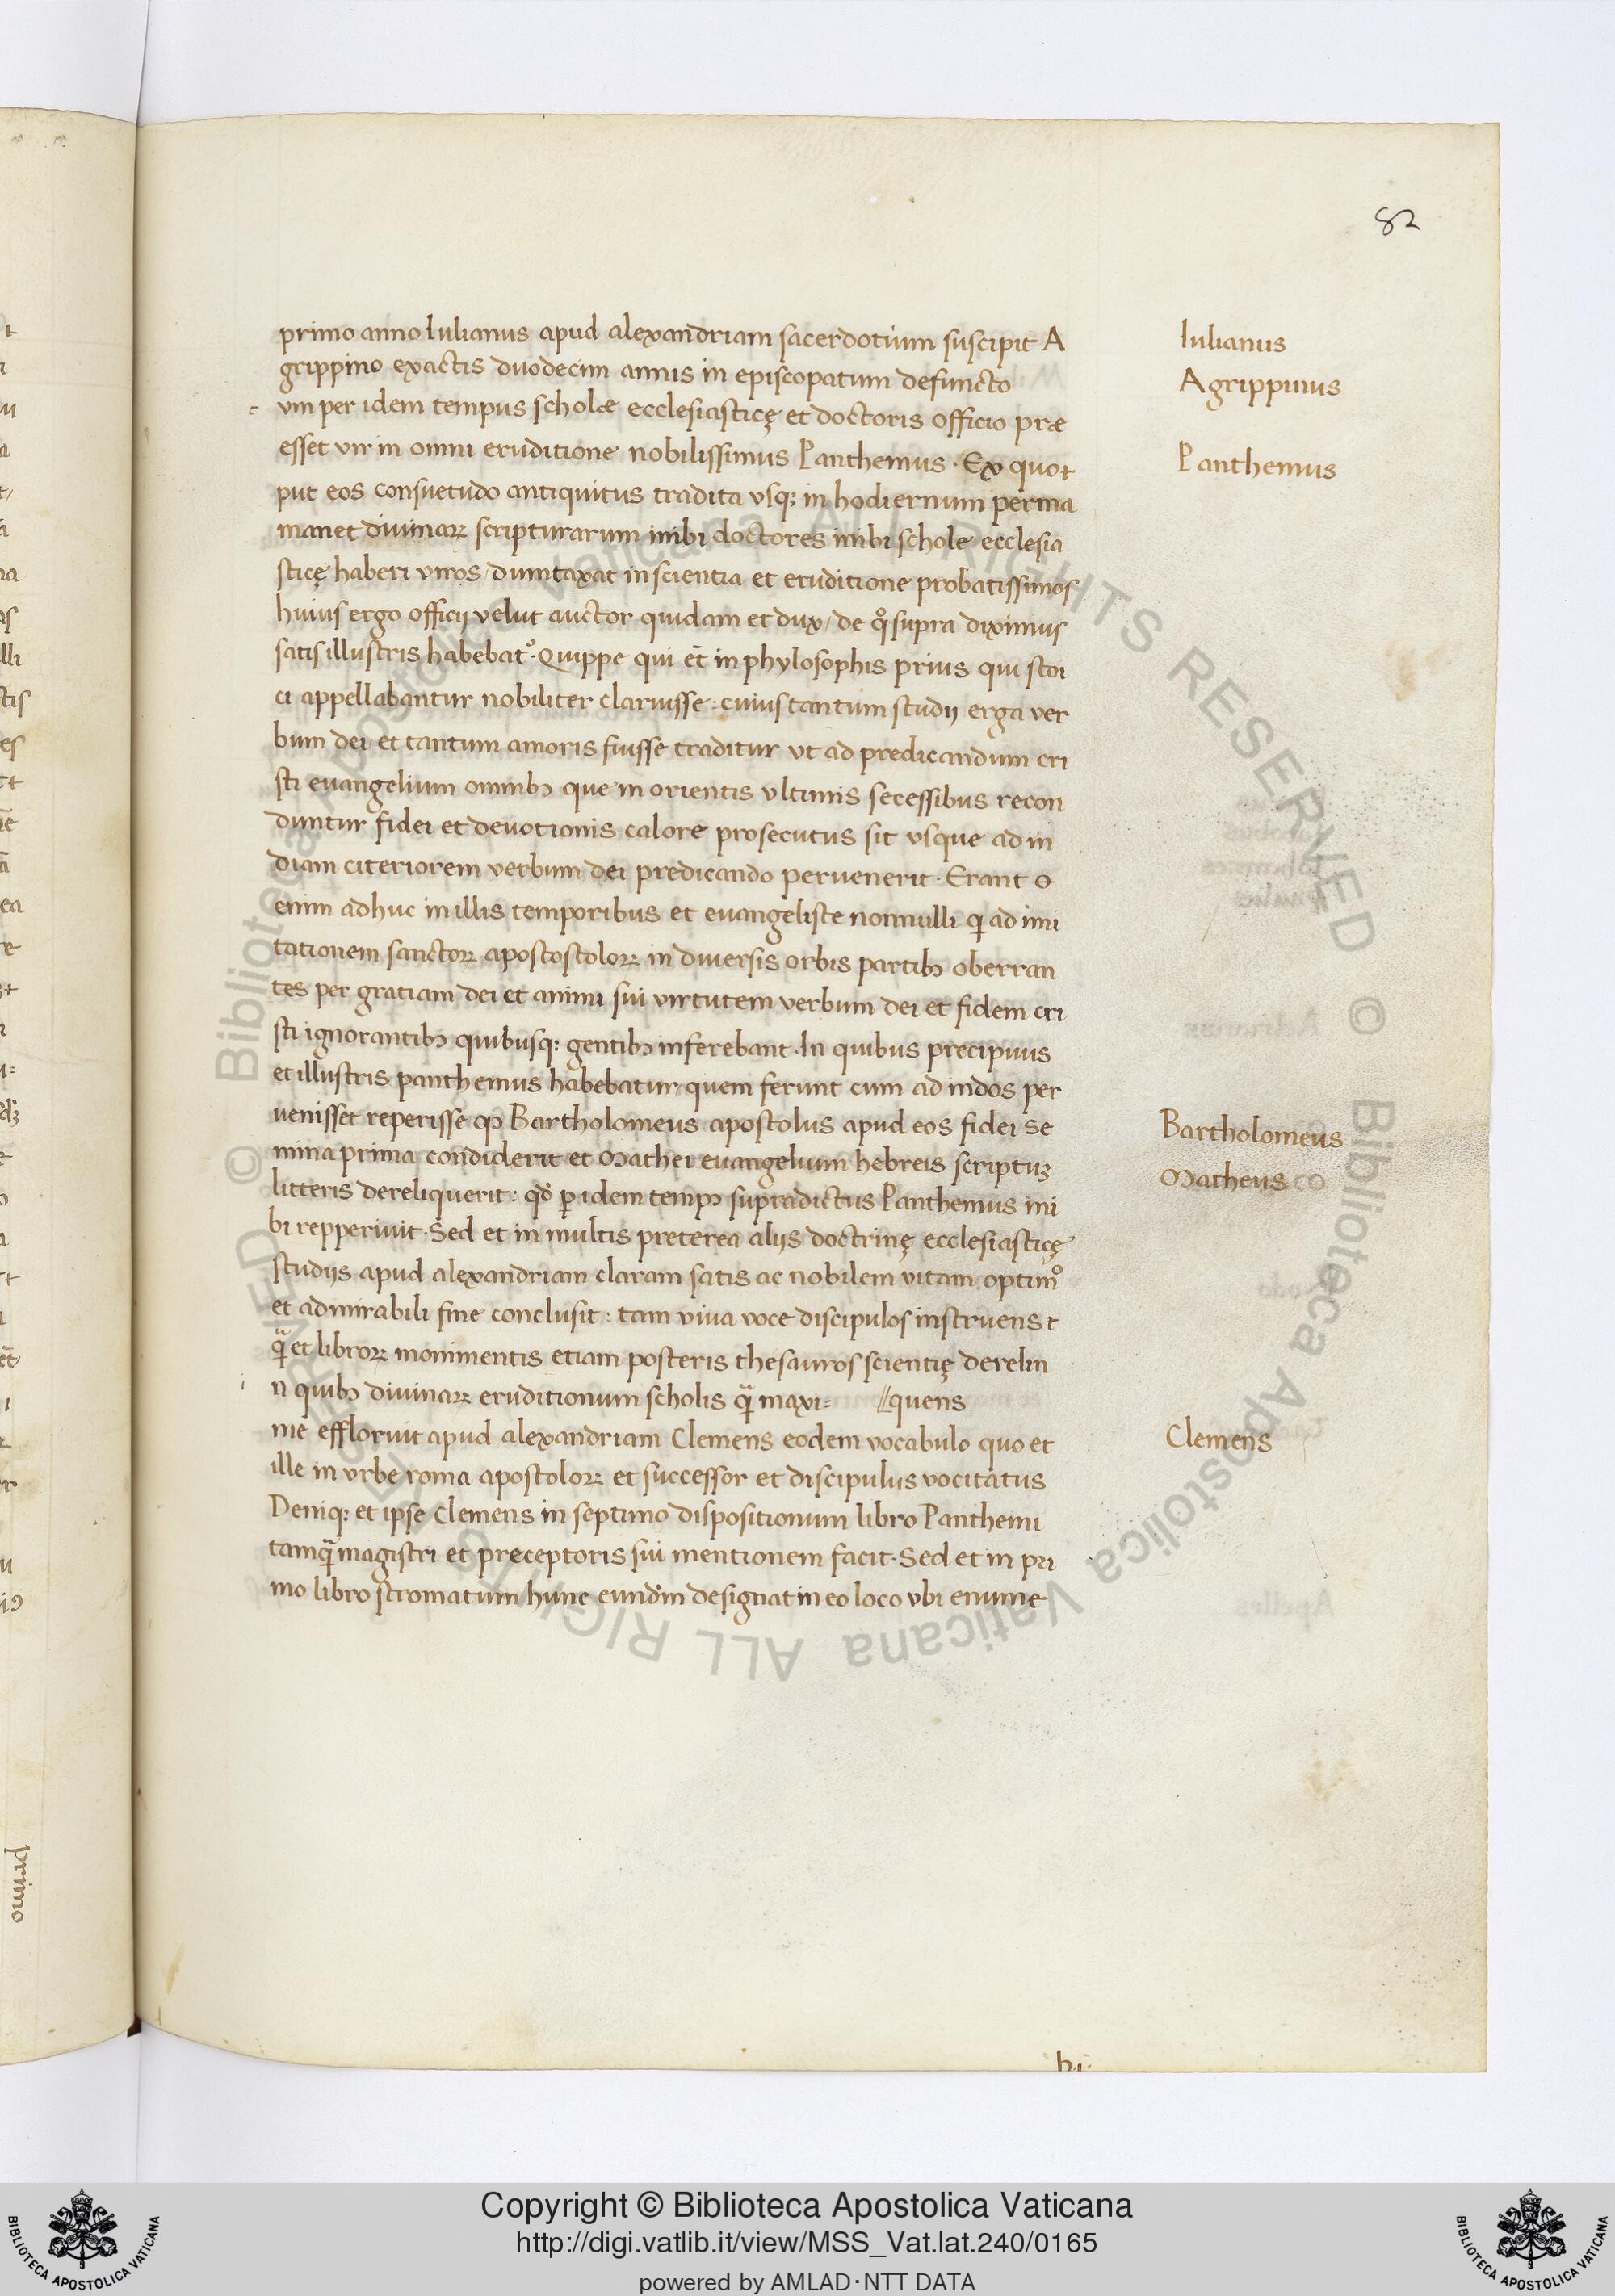 82
primo anno Iulianus apud alexandriam sacerdotium suscipit A
grippino exactis duodecim annis in episcopatum defuncto
c vm per idem tempus scholæ ecclesiasticę et doctoris officio præ
esset vir in omni eruditione nobilissimus Panthemus · Ex quor
put eos consuetudo antiquitus tradita vsq; in hodiernum perma
manet diuinaꝝ scripturarum inibi doctores inibi schole ecclesia
sticę haberi viros / dumtaxat in scientia et eruditione probatissimos
huius ergo officij velut auctor quidam et dux / de qͦ supra diximus
satis illustris habebat᷑ · Quippe qui et̄ in phylosophis prius qui stoi
ci appellabantur nobiliter claruisse : cuius tantum studij erga ver
bum dei et tantum amoris fuisse traditur vt ad predicandum cri
sti euangelium omnibꝫ que in orientis vltimis secessibus recon
duntur fidei et deuotionis calore prosecutus sit vsque ad in
diam citeriorem verbum dei predicando peruenerit · Erant o
enim adhuc in illis temporibus et euangeliste nonnulli qi ad imi
tationem sanctoꝝ apostostoloꝝ in diuersis orbis partibꝫ oberran
tes per gratiam dei et animi sui virtutem verbum dei et fidem cri
sti ignorantibꝫ quibusq; gentibꝫ inferebant · In quibus precipuus
et illustris panthemus habebatur quem ferunt cum ad indos per
uenisset reperisse ꝙ Bartholomeus apostolus apud eos fidei se
mina prima condiderit et Mathei euangelium hebreis scriptuꝫ
litteris dereliquerit : qd̓ ꝑ idem tempꝰ supradictus Panthemus ini
bi repperiuit · Sed et in multis preterea alijs doctrinę ecclesiasticę
studijs apud alexandriam claram satis ac nobilem vitam optimͦ
et admirabili fine conclusit : tam viua voce discipulos instruens t
qᷓ et libroꝝ monimentis etiam posteris thesauros scientię derelin
i n quibꝫ diuinaꝝ eruditionum scholis qᷓ maxi= //quens
me effloruit apud alexandriam Clemens eodem vocabulo quo et
ille in vrbe roma apostoloꝝ et successor et discipulus vocitatus
Deniq; et ipse Clemens in septimo dispositionum libro Panthemi
tamqᷓ magistri et preceptoris sui mentionem facit · Sed et in pri
mo libro stromatum hunc eundm̄ designat in eo loco vbi enume
Iulianus
Agrippinus
Panthemus
Bartholomeus
Matheus
Clemens
primo
© Biblioteca Apostolica Vaticana ALL RIGHTS RESERVED © Biblioteca Apostolica Vaticana ALL RIGHTS RESERVED
Copyright © Biblioteca Apostolica Vaticana
http://digi.vatlib.it/view/MSS_Vat.lat.240/0165
powered by AMLAD·NTT DATA
BIBLIOTECA APOSTOLICA VATICANA
BIBLIOTECA APOSTOLICA VATICANA